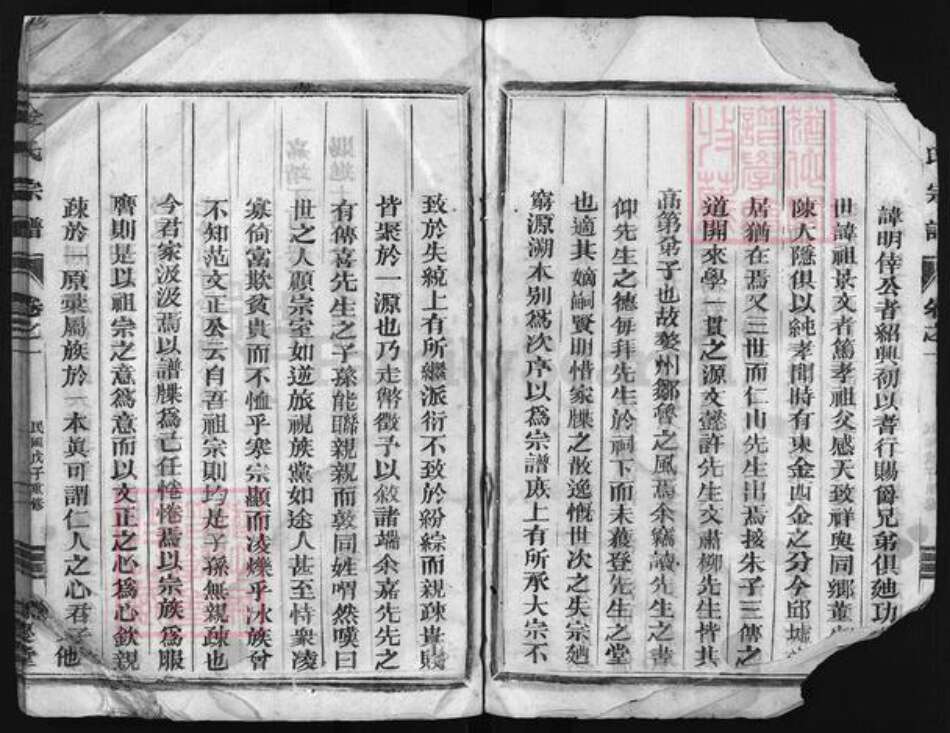 氏宗譜 卷之一
諱明倖公者紹興初以耆行賜爵兄弟俱廸功
世諱祖景文者篤孝祖父感天致祥與同鄉董
陳大隱俱以純孝聞時有東金西金之分今邱墟
居猶在焉又三世而仁山先生出焉接朱子三傳之
道開來學一貫之源文懿許先生文肅柳先生皆其
高第弟子也故婺州鄒魯之風焉余竊讀先生之書
仰先生之德每拜先生於祠下而未獲登先生之堂
也適其嫡嗣賢明惜家牒之散逸慨世次之失宗廼
窮源溯本別為次序以為宗譜庶上有所承大宗不
致於失統上有所繼派衍不致於紛綜而親疎貴賤
皆聚於一源也乃走幣徵予以敘諸端余嘉先先之
有傳喜先生之子孫能聯親親而敦同姓喟然嘆曰
世之人顧宗室如逆旅視族黨如途人甚至恃衆凌
寡倚富欺貧貴而不恤乎寒宗顯而凌爍乎冰族曾
不知范文正公云自吾祖宗則均是子孫無親疎也
今君家汲汲焉以譜牒為己任惓惓焉以宗族為服
膺則是以祖宗之意為意而以文正之心為心欽親
疎於一原彙屬族於一本眞可謂仁人之心君子他
金氏宗譜 卷之一 民國戊子重修 堂